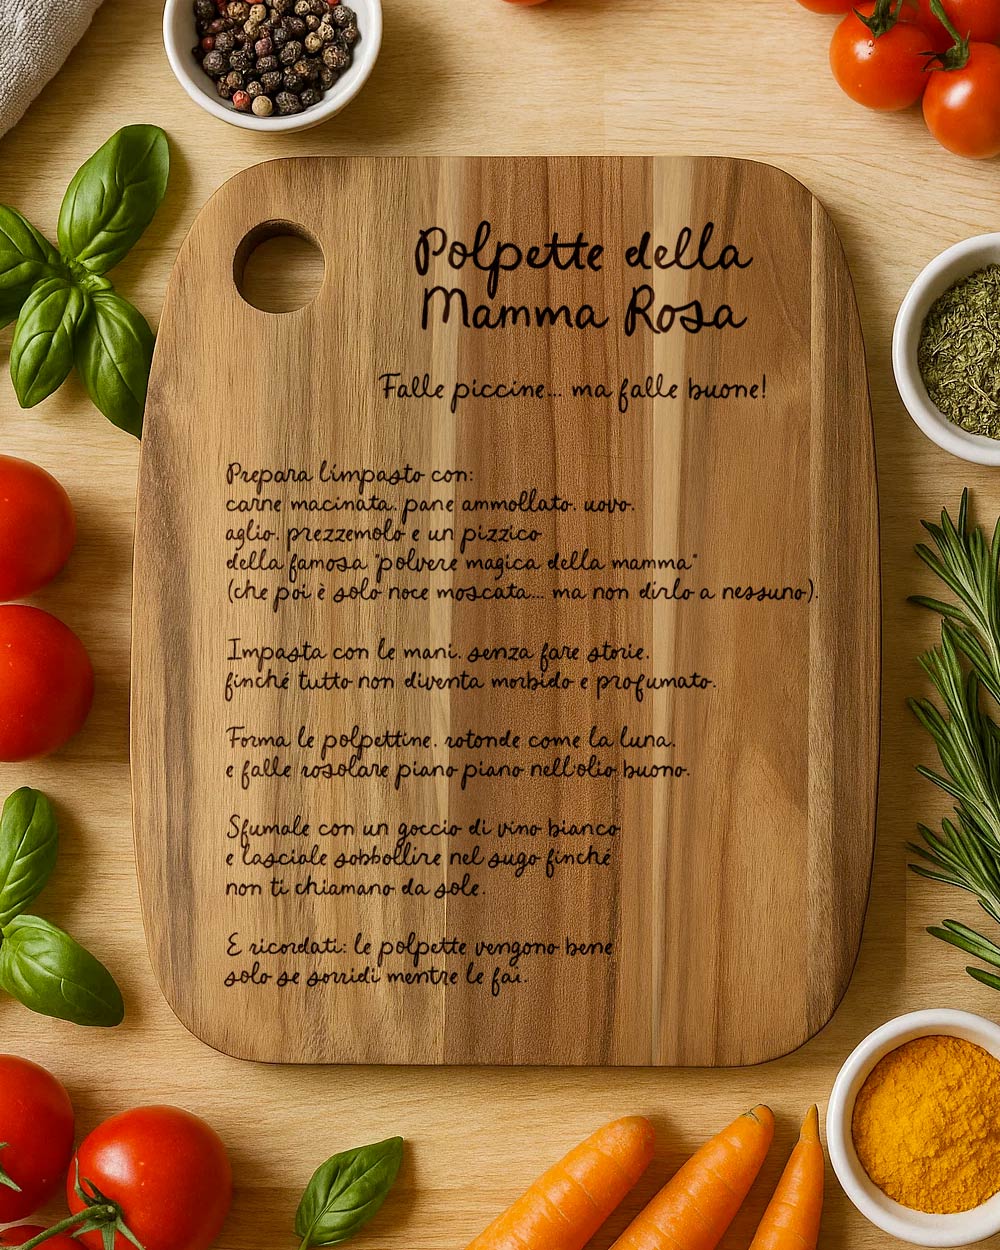 Polpette della
Mamma Rosa
Falle piccine... ma falle buone!
Prepara l'impasto con:
carne macinata, pane ammollato, uovo,
aglio, prezzemolo e un pizzico
della famosa "polvere magica della mamma"
(che poi è solo noce moscata... ma non dirlo a nessuno).
Impasta con le mani, senza fare storie,
finché tutto non diventa morbido e profumato.
Forma le polpettine, rotonde come la luna,
e falle rosolare piano piano nell'olio buono.
Sfumale con un goccio di vino bianco
e lasciale sobbollire nel sugo finché
non ti chiamano da sole.
E ricordati: le polpette vengono bene
solo se sorridi mentre le fai.